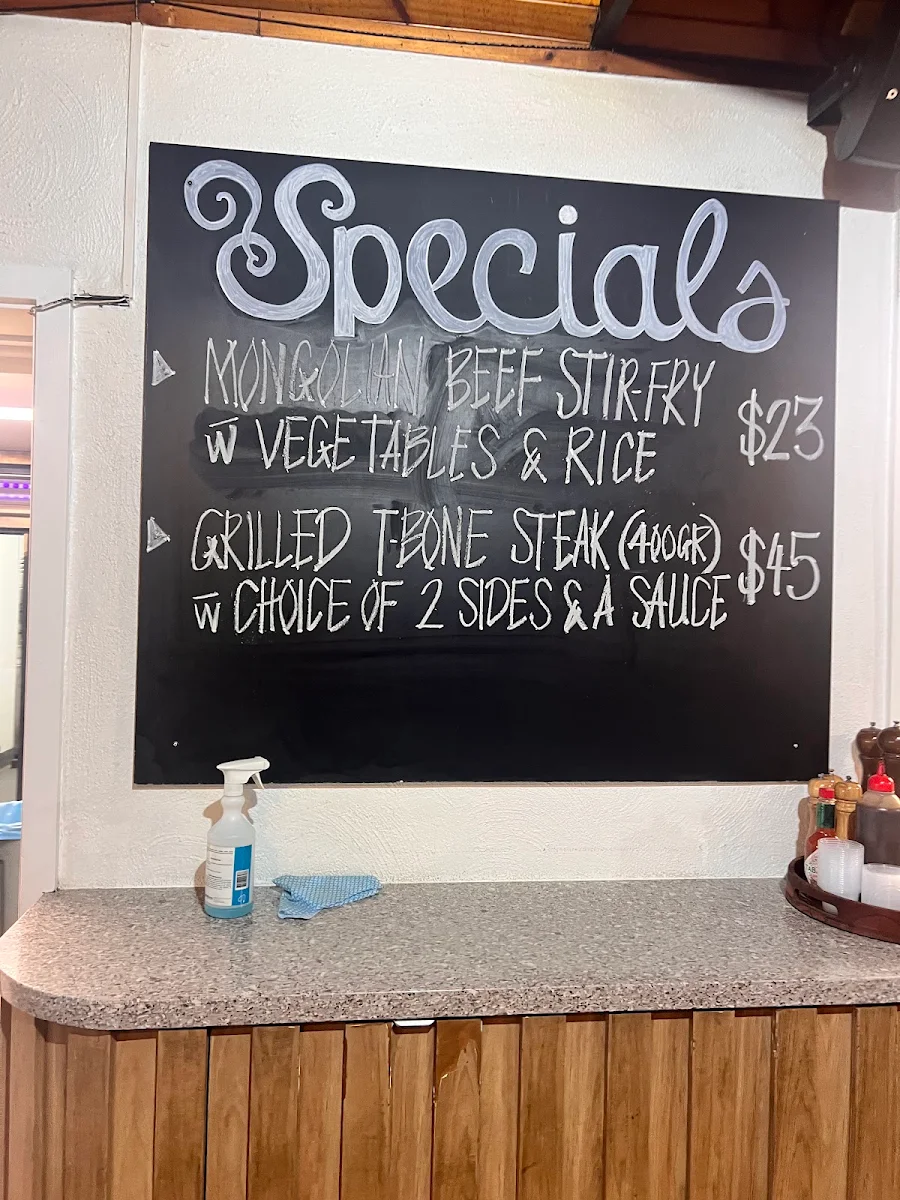 Specials
MONGOLIAN BEEF STIR-FRY
$23
W̅ VEGETABLES & RICE
GRILLED T-BONE STEAK (400GR)
$45
W̅ CHOICE OF 2 SIDES & A SAUCE